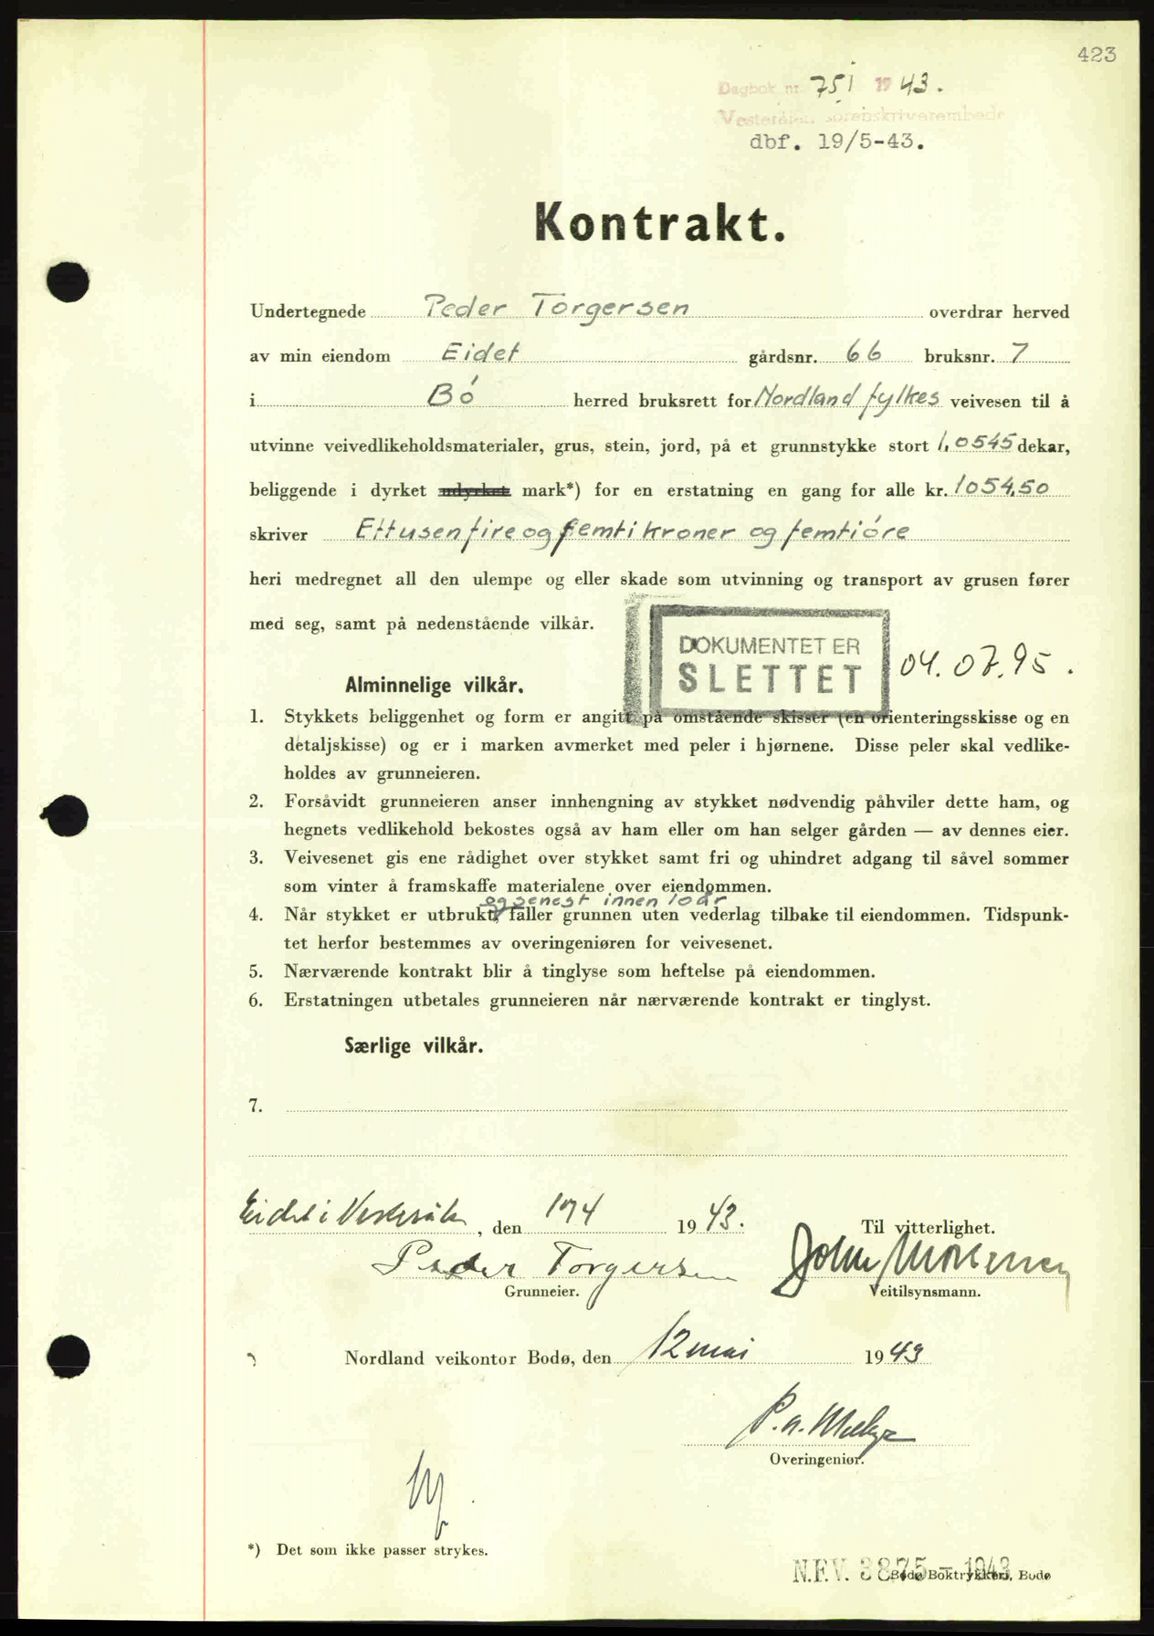 423
Dagbok nr. 751 1943.
Vesterålen sorenskriverembede
dbf. 19/5-43.
Kontrakt.
Undertegnede Peder Torgersen overdrar herved
av min eiendom Eidet gårdsnr. 66 bruksnr. 7
i Bó herred bruksrett for Nordland fylkes veivesen til å
utvinne veivedlikeholdsmaterialer, grus, stein, jord, på et grunnstykke stort 1,0545 dekar,
beliggende i dyrket udyrket mark*) for en erstatning en gang for alle kr. 1054,50
skriver Ettusenfireogfemti kroner og femtióre
heri medregnet all den ulempe og eller skade som utvinning og transport av grusen fører
med seg, samt på nedenstående vilkår.
DOKUMENTET ER
SLETTET 04.07.95.
Alminnelige vilkår.
1. Stykkets beliggenhet og form er angitt på omstående skisser (en orienteringsskisse og en
detaljskisse) og er i marken avmerket med peler i hjørnene. Disse peler skal vedlike-
holdes av grunneieren.
2. Forsåvidt grunneieren anser innhengning av stykket nødvendig påhviler dette ham, og
hegnets vedlikehold bekostes også av ham eller om han selger gården — av dennes eier.
3. Veivesenet gis ene rådighet over stykket samt fri og uhindret adgang til såvel sommer
som vinter å framskaffe materialene over eiendommen.
og senest innen 10 år
4. Når stykket er utbrukt, faller grunnen uten vederlag tilbake til eiendommen. Tidspunk-
tet herfor bestemmes av overingeniøren for veivesenet.
5. Nærværende kontrakt blir å tinglyse som heftelse på eiendommen.
6. Erstatningen utbetales grunneieren når nærværende kontrakt er tinglyst.
Særlige vilkår.
7.
Eidet i Vesterålen, den 17/4 1943.
Til vitterlighet.
Peder Torgersen
Grunneier.
Veitilsynsmann.
Nordland veikontor Bodø, den 12 mai 1943
Overingeniør.
*) Det som ikke passer strykes.
N.F.V. 3875 - 1943
Bodø Boktrykkeri, Bodø